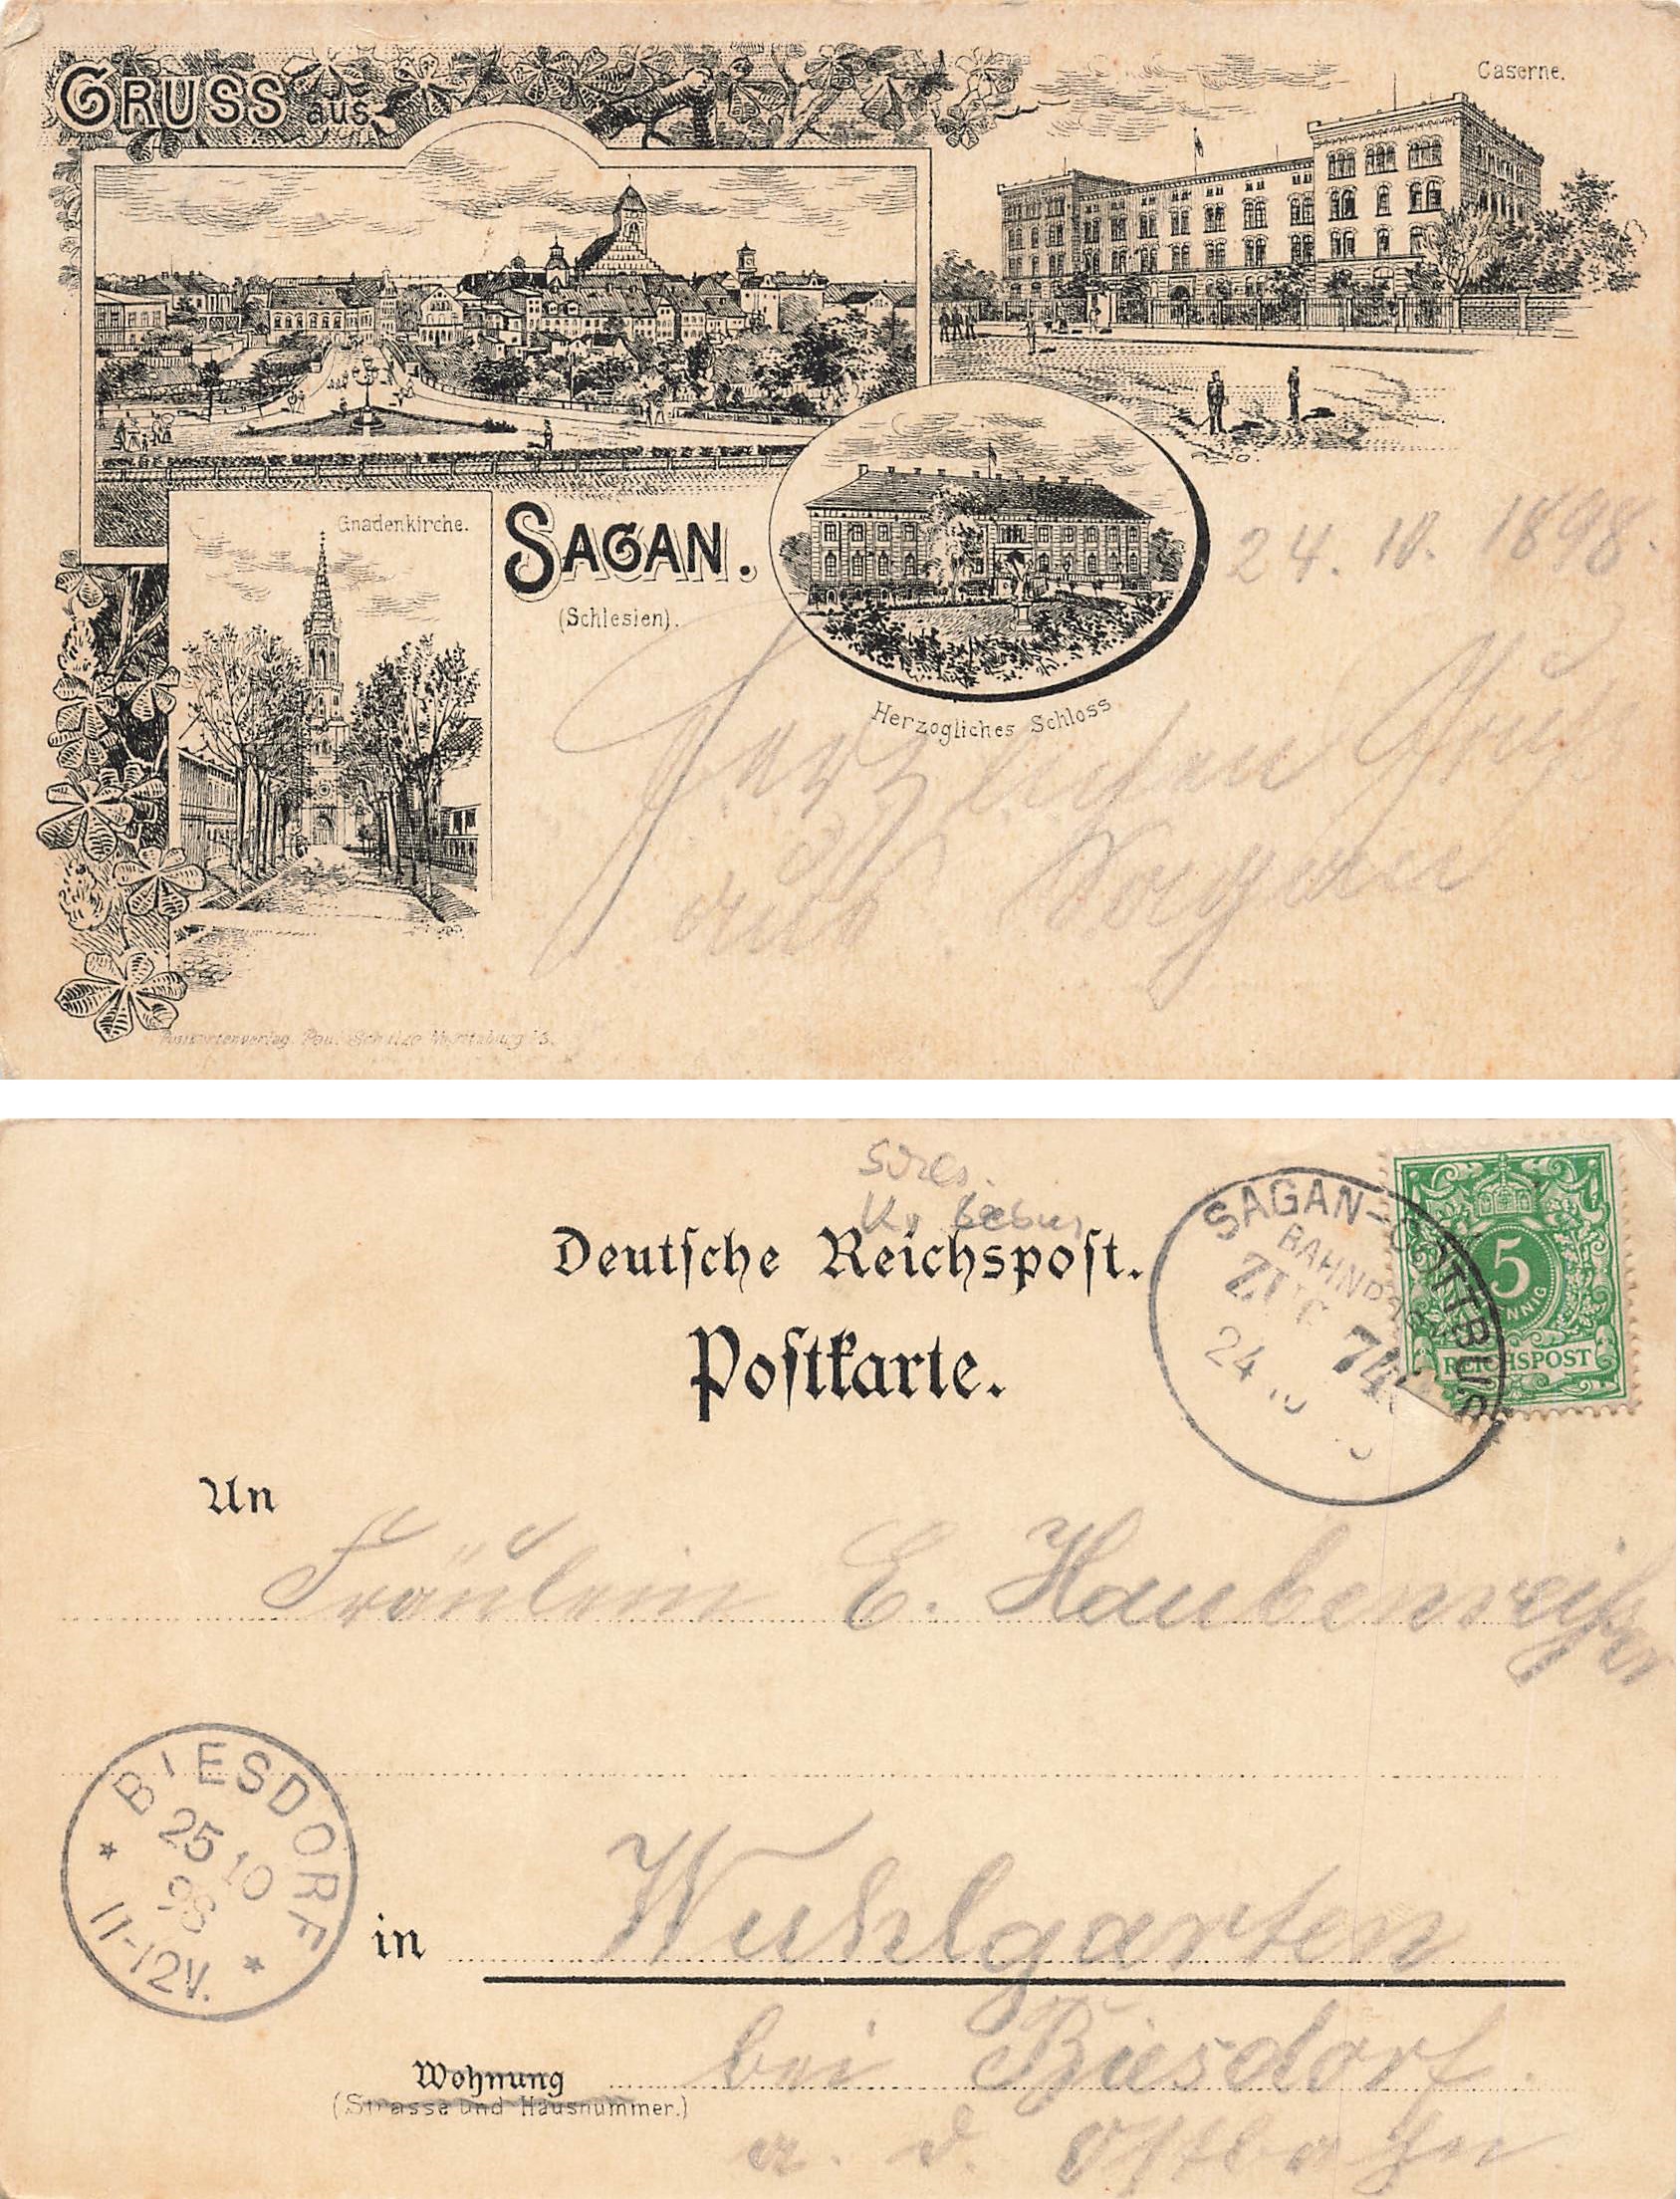 GRUSS aus
Caserne.
Gnadenkirche.
SAGAN.
(Schlesien).
Herzogliches Schloss
24. 10. 1898.
Herzlichen Gruß
aus Sagan
Postkartenverlag Paul Schulze
Schles.
Deutsche Reichspost.
Postkarte.
SAGAN-COTTBUS
BAHNPOST
ZUG 74
24 10
5
PFENNIG
REICHSPOST
An
Fräulein E. Haubenreißer
BIESDORF
25 10
98
11-12V.
in Wuhlgarten
Wohnung bei Biesdorf.
(Strasse und Hausnummer.)
a. d. Ostbahn